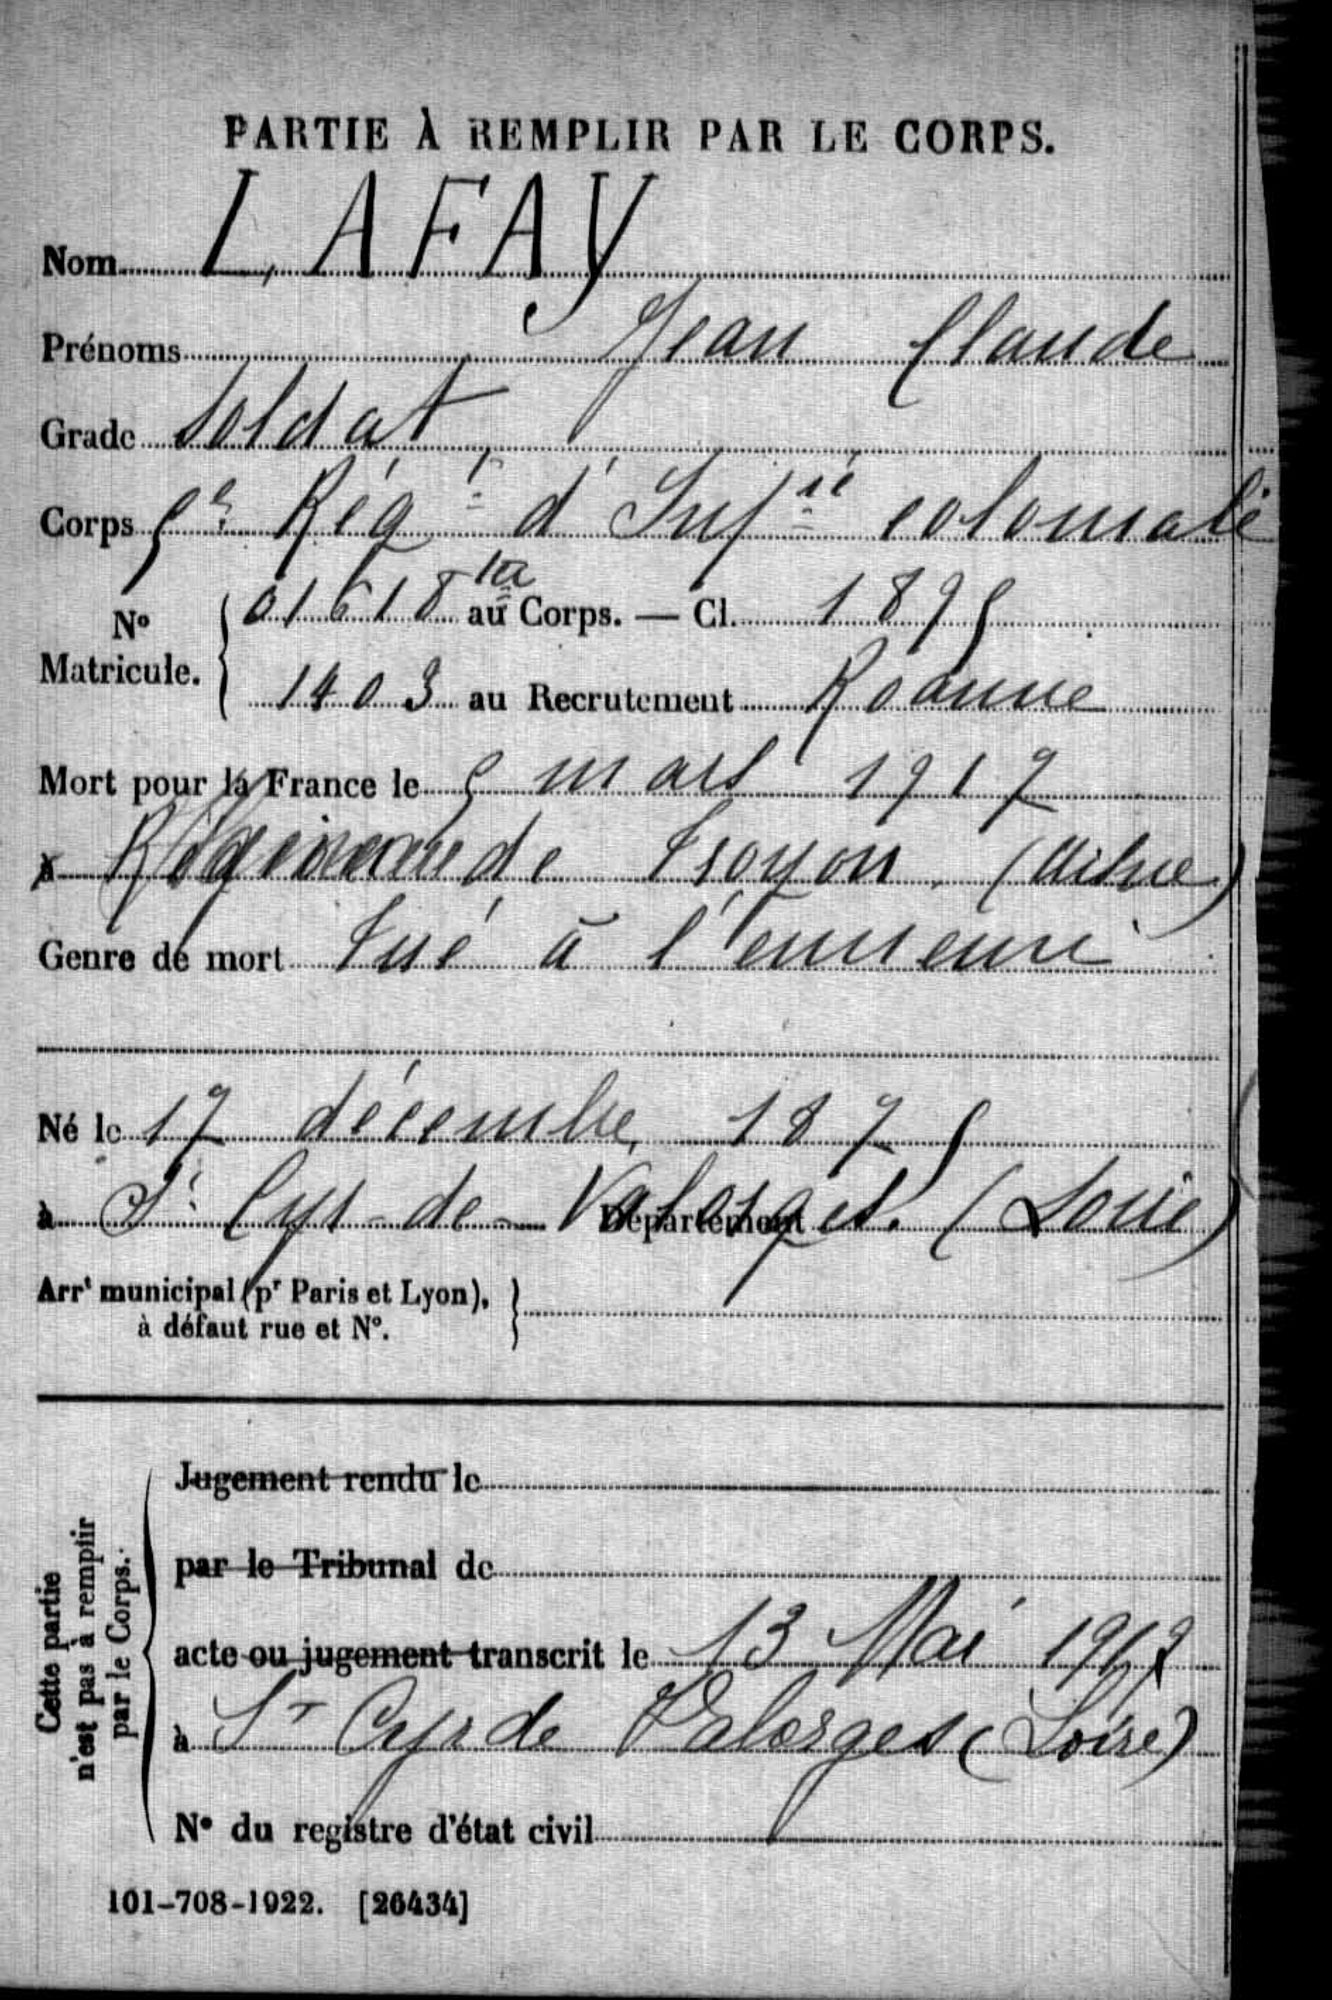 PARTIE À REMPLIR PAR LE CORPS.
Nom LAFAY
Prénoms Jean Claude
Grade Soldat
Corps 5e Régt d'Infie coloniale
No Matricule. 01618 ter au Corps. — Cl. 1895
1403 au Recrutement Roanne
Mort pour la France le 5 mars 1917
à de Troyon (Aisne)
Genre de mort Tué à l'ennemi
Né le 17 décembre 1875
à St Cyr-de-Valorges. Département (Loire)
Arrt municipal (pr Paris et Lyon),
à défaut rue et No.
Cette partie
n'est pas à remplir
par le Corps.
Jugement rendu le
par le Tribunal de
acte ou jugement transcrit le 13 Mai 1917
à St Cyr de Valorges (Loire)
No du registre d'état civil
101-708-1922. [26434]